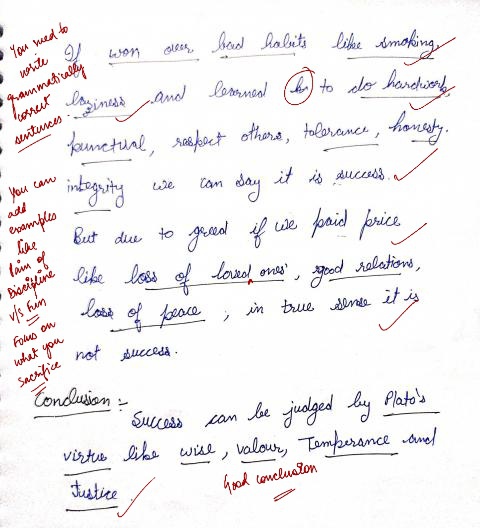 You need to
write
grammatically
correct
sentences.
If won over bad habits like smoking,
laziness and learned to to do hardwork,
punctual, respect others, tolerance, honesty,
integrity we can say it is success.
You can
add
examples
like
Pain of
Discipline
v/s fun
Focus on
what you
sacrifice
But due to greed if we paid price
like loss of loved ones', good relations,
loss of peace, in true sense it is
not success.
Conclusion:-
Success can be judged by Plato's
virtue like wise, valour, Temperance and
Justice.
Good conclusion